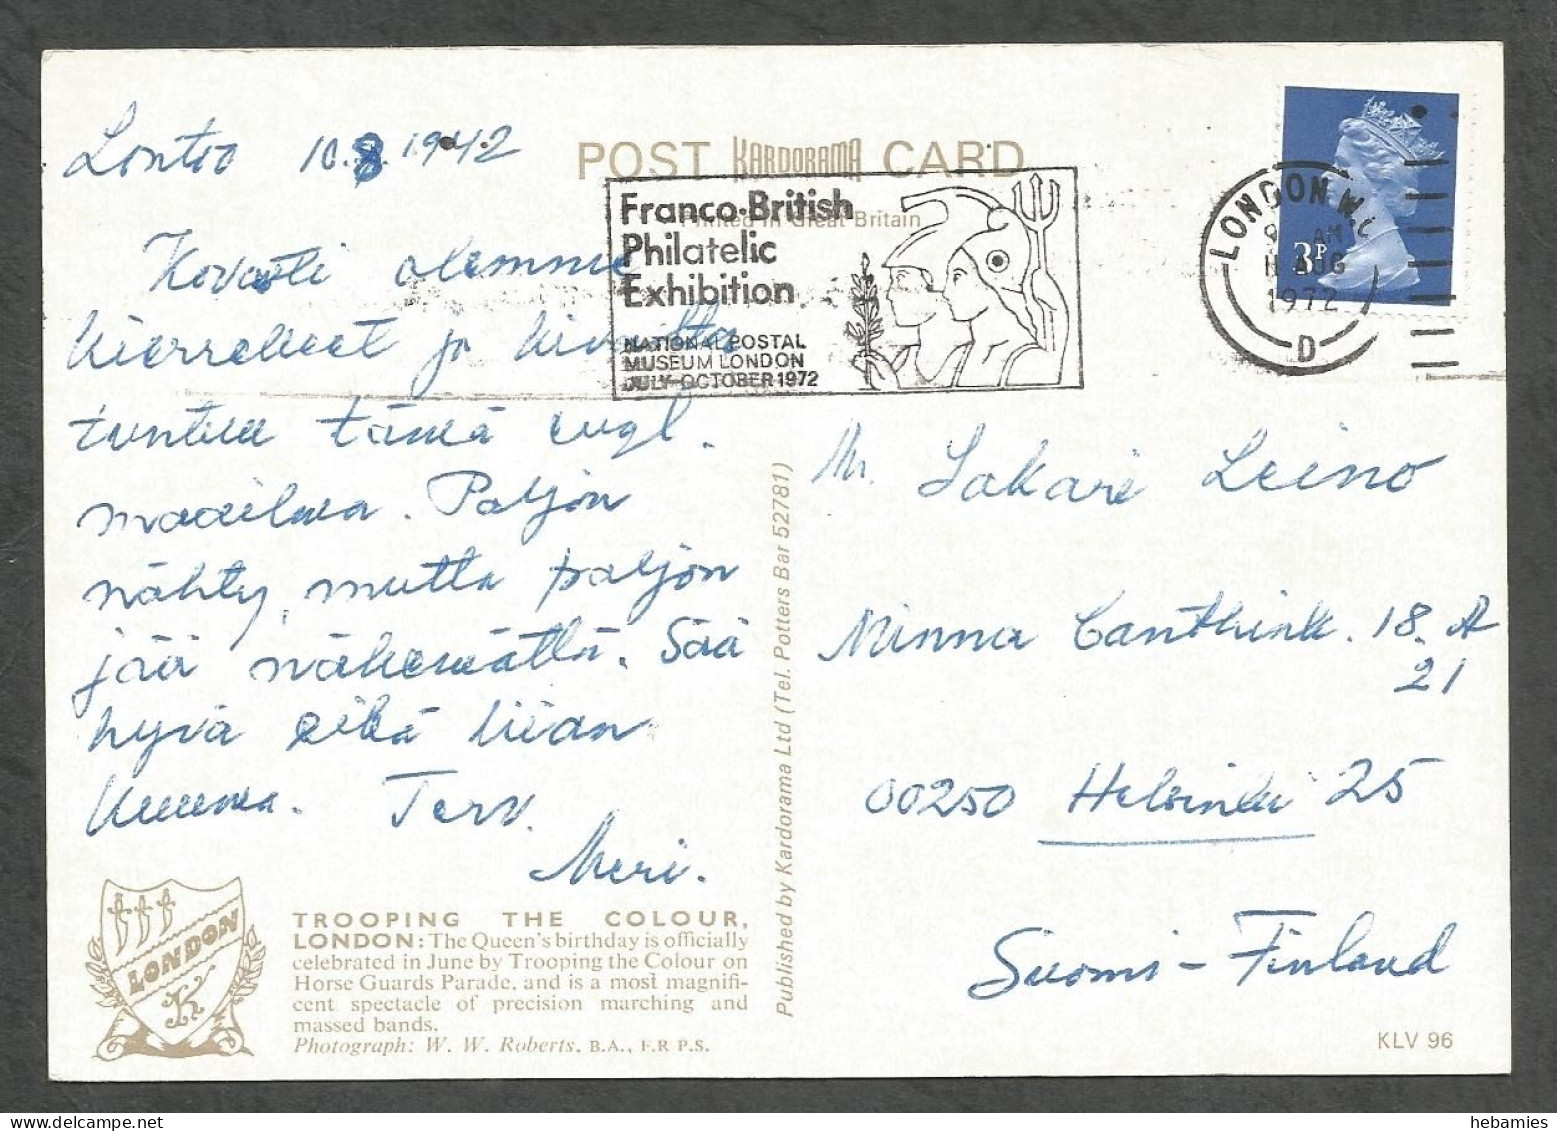 Lontoo 10.8.1942
POST KARDORAMA CARD
Printed in Great Britain
Franco-British
Philatelic
Exhibition
NATIONAL POSTAL
MUSEUM LONDON
JULY-OCTOBER 1972
LONDON W.C
AM
11 AUG
1972
D
3P
Kovasti olemme
kierrelleet ja
tämä engl.
maailma. Paljon
nähty, mutta paljon
jää näkemättä. Sää
hyvä eikä liian
kuuma. Terv.
Meri.
Mr. Sakari Leino
Minna Canthink. 18. A
21
00250 Helsinki 25
Suomi - Finland
TROOPING THE COLOUR,
LONDON: The Queen's birthday is officially
celebrated in June by Trooping the Colour on
Horse Guards Parade, and is a most magnifi-
cent spectacle of precision marching and
massed bands.
Photograph: W. W. Roberts, B.A., F.R.P.S.
LONDON
K
Published by Kardorama Ltd (Tel. Potters Bar 52781)
KLV 96
hebamies